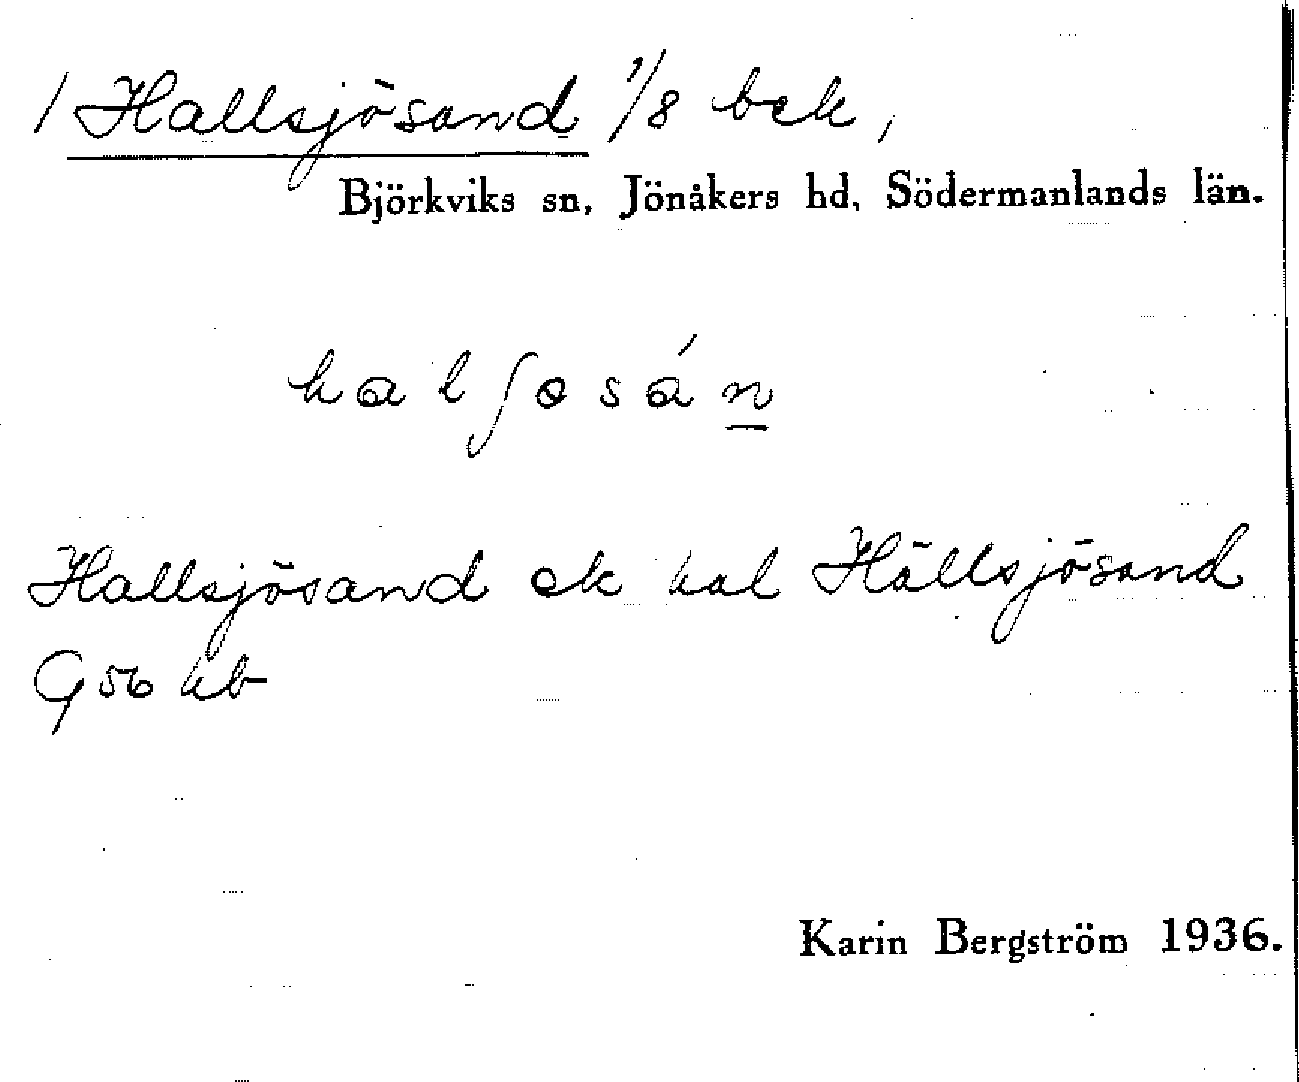 / Hallsjösand 1/8 bek,
Björkviks sn, Jönåkers hd, Södermanlands län.
halʃosáṉ
Hallsjösand ek hal Hällsjösand
G 56 hb
Karin Bergström 1936.